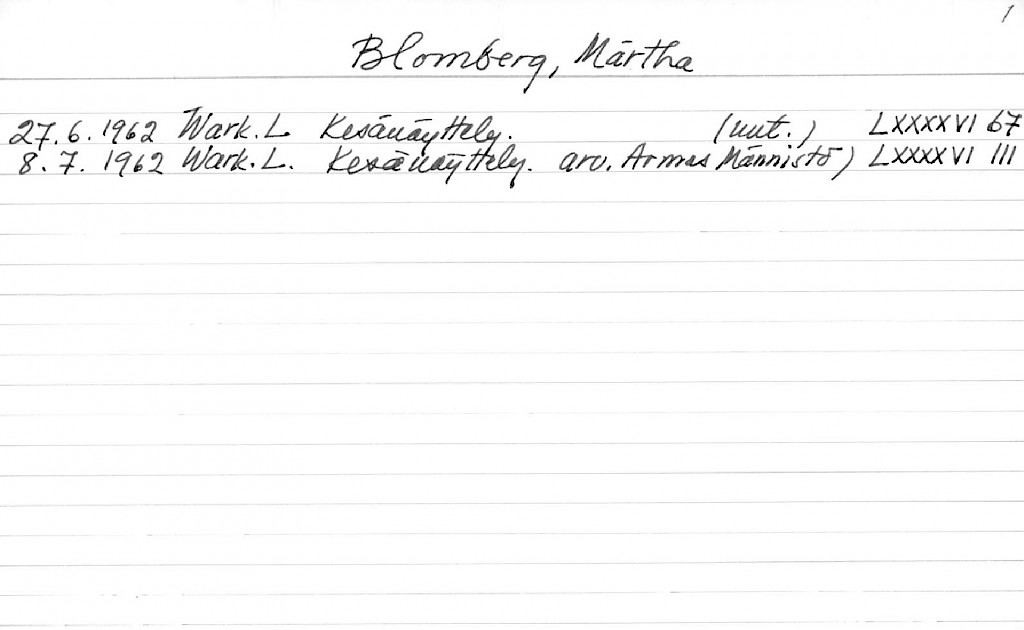 1
Blomberg, Märtha
27.6.1962 Wark.L. Kesänäyttely. (uut.) LXXXXVI 67
8.7.1962 Wark.L. Kesänäyttely. arv. Armas Männistö) LXXXXVI 111